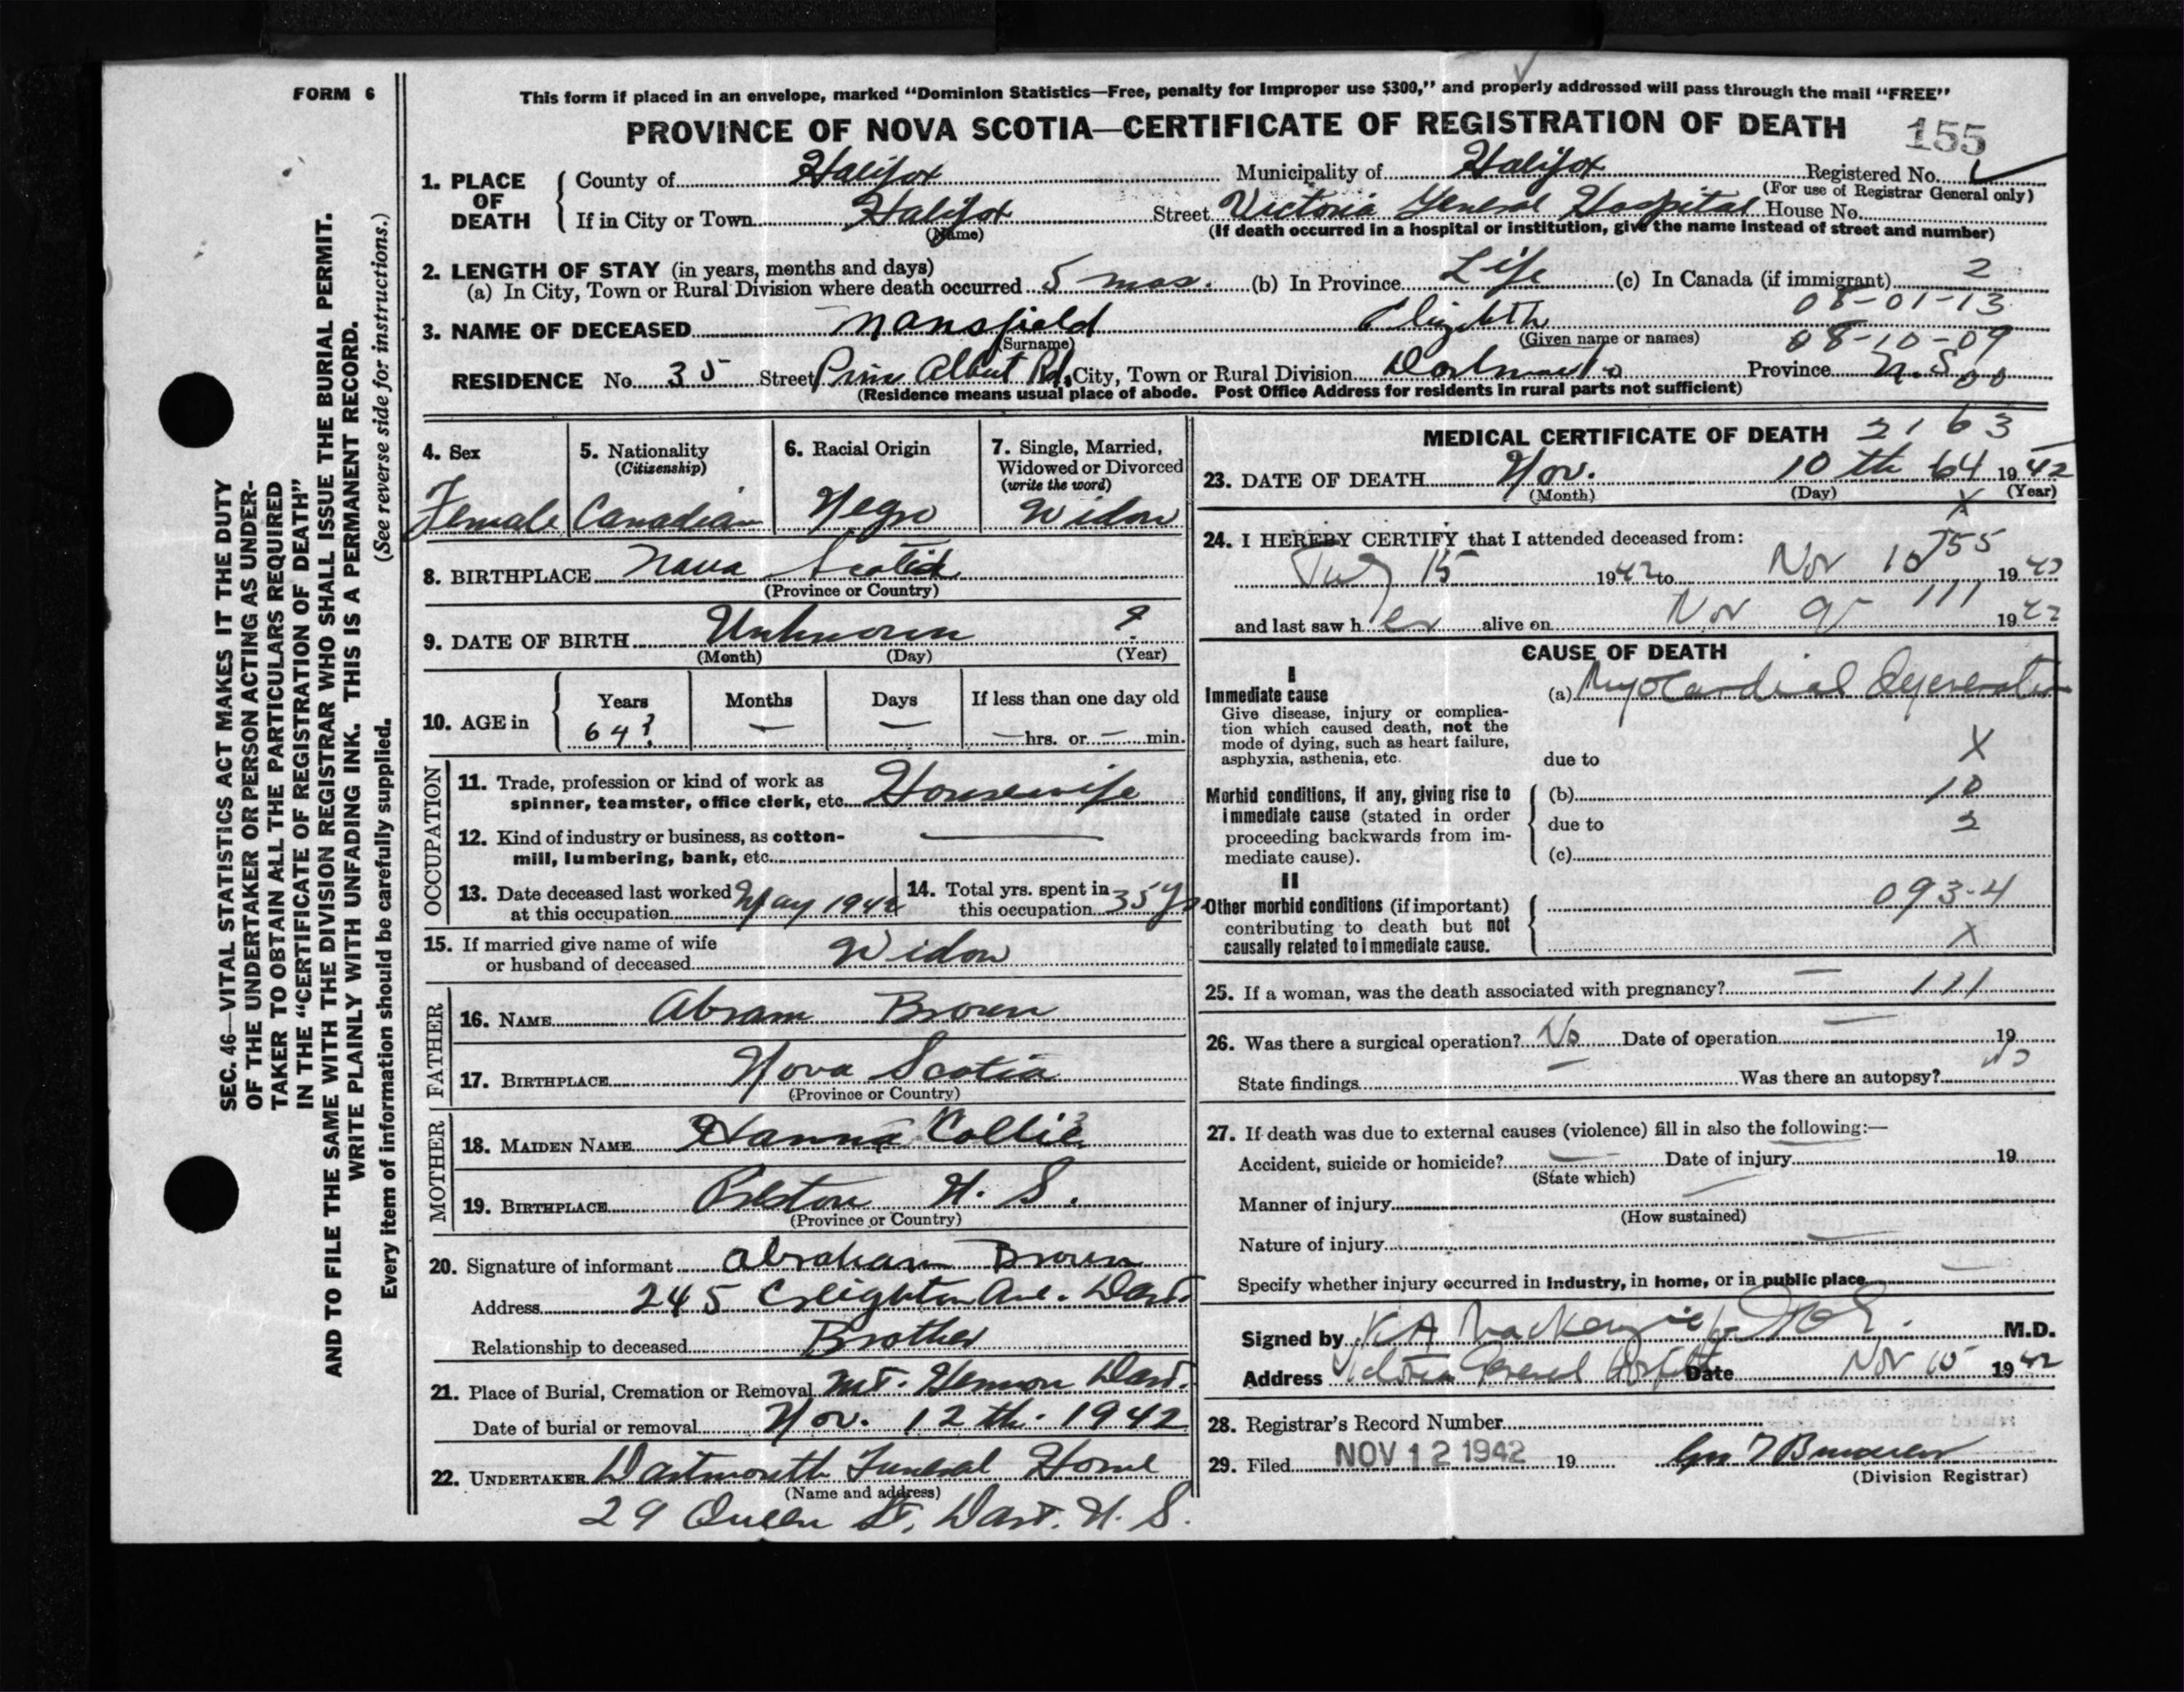 FORM 6
This form if placed in an envelope, marked “Dominion Statistics—Free, penalty for Improper use $300,” and properly addressed will pass through the mail “FREE”
PROVINCE OF NOVA SCOTIA—CERTIFICATE OF REGISTRATION OF DEATH 155
1. PLACE OF DEATH { County of Halifax Municipality of Halifax Registered No.
(For use of Registrar General only)
If in City or Town Halifax Street Victoria General Hospital House No.
(Name) (If death occurred in a hospital or institution, give the name instead of street and number)
2. LENGTH OF STAY (in years, months and days)
(a) In City, Town or Rural Division where death occurred 5 mos. (b) In Province Life (c) In Canada (if immigrant) 2
08-01-13
3. NAME OF DECEASED Mansfield Elizabeth
(Surname) (Given name or names) 08-10-09
RESIDENCE No. 35 Street Prince Albert Rd. City, Town or Rural Division Dartmouth Province N.S. 00
(Residence means usual place of abode. Post Office Address for residents in rural parts not sufficient)
4. Sex 5. Nationality (Citizenship) 6. Racial Origin 7. Single, Married, Widowed or Divorced (write the word)
Female Canadian Negro Widow
8. BIRTHPLACE Nova Scotia
(Province or Country)
9. DATE OF BIRTH Unknown ?
(Month) (Day) (Year)
10. AGE in { Years Months Days If less than one day old
64? — — — hrs. or — min.
OCCUPATION
11. Trade, profession or kind of work as
spinner, teamster, office clerk, etc. Housewife
12. Kind of industry or business, as cotton-
mill, lumbering, bank, etc. —
13. Date deceased last worked at this occupation May 1942 14. Total yrs. spent in this occupation 35 yrs
15. If married give name of wife
or husband of deceased Widow
FATHER
16. NAME Abram Brown
17. BIRTHPLACE Nova Scotia
(Province or Country)
MOTHER
18. MAIDEN NAME Hanna Collie
19. BIRTHPLACE Preston N. S.
(Province or Country)
20. Signature of informant Abraham Brown
Address 245 Creighton Ave. Dart.
Relationship to deceased Brother
21. Place of Burial, Cremation or Removal Mt. Hermon Dart.
Date of burial or removal Nov. 12th. 1942
22. UNDERTAKER Dartmouth Funeral Home
(Name and address)
29 Queen St. Dart. N. S.
MEDICAL CERTIFICATE OF DEATH 2163
23. DATE OF DEATH Nov. 10th 64 1942
(Month) (Day) (Year)
X
24. I HEREBY CERTIFY that I attended deceased from:
15 1942 to Nov 10 1942
and last saw her alive on Nov 9 111 1942
CAUSE OF DEATH
I
Immediate cause
Give disease, injury or complica-
tion which caused death, not the
mode of dying, such as heart failure,
asphyxia, asthenia, etc.
(a) Myocardial degeneration
due to X
Morbid conditions, if any, giving rise to
immediate cause (stated in order
proceeding backwards from im-
mediate cause).
(b) 10
due to 2
(c)
II
Other morbid conditions (if important)
contributing to death but not
causally related to immediate cause.
093-4
X
25. If a woman, was the death associated with pregnancy? — 111
26. Was there a surgical operation? No Date of operation — 19
State findings — Was there an autopsy? No
27. If death was due to external causes (violence) fill in also the following:—
Accident, suicide or homicide? — Date of injury 19
(State which)
Manner of injury —
(How sustained)
Nature of injury —
Specify whether injury occurred in Industry, in home, or in public place —
Signed by K A MacKenzie M.D.
Address Victoria General Hospital Date Nov 10 1942
28. Registrar's Record Number
29. Filed NOV 12 1942 19
(Division Registrar)
SEC. 46—VITAL STATISTICS ACT MAKES IT THE DUTY
OF THE UNDERTAKER OR PERSON ACTING AS UNDER-
TAKER TO OBTAIN ALL THE PARTICULARS REQUIRED
IN THE “CERTIFICATE OF REGISTRATION OF DEATH”
AND TO FILE THE SAME WITH THE DIVISION REGISTRAR WHO SHALL ISSUE THE BURIAL PERMIT.
WRITE PLAINLY WITH UNFADING INK. THIS IS A PERMANENT RECORD.
(See reverse side for instructions.)
Every item of information should be carefully supplied.